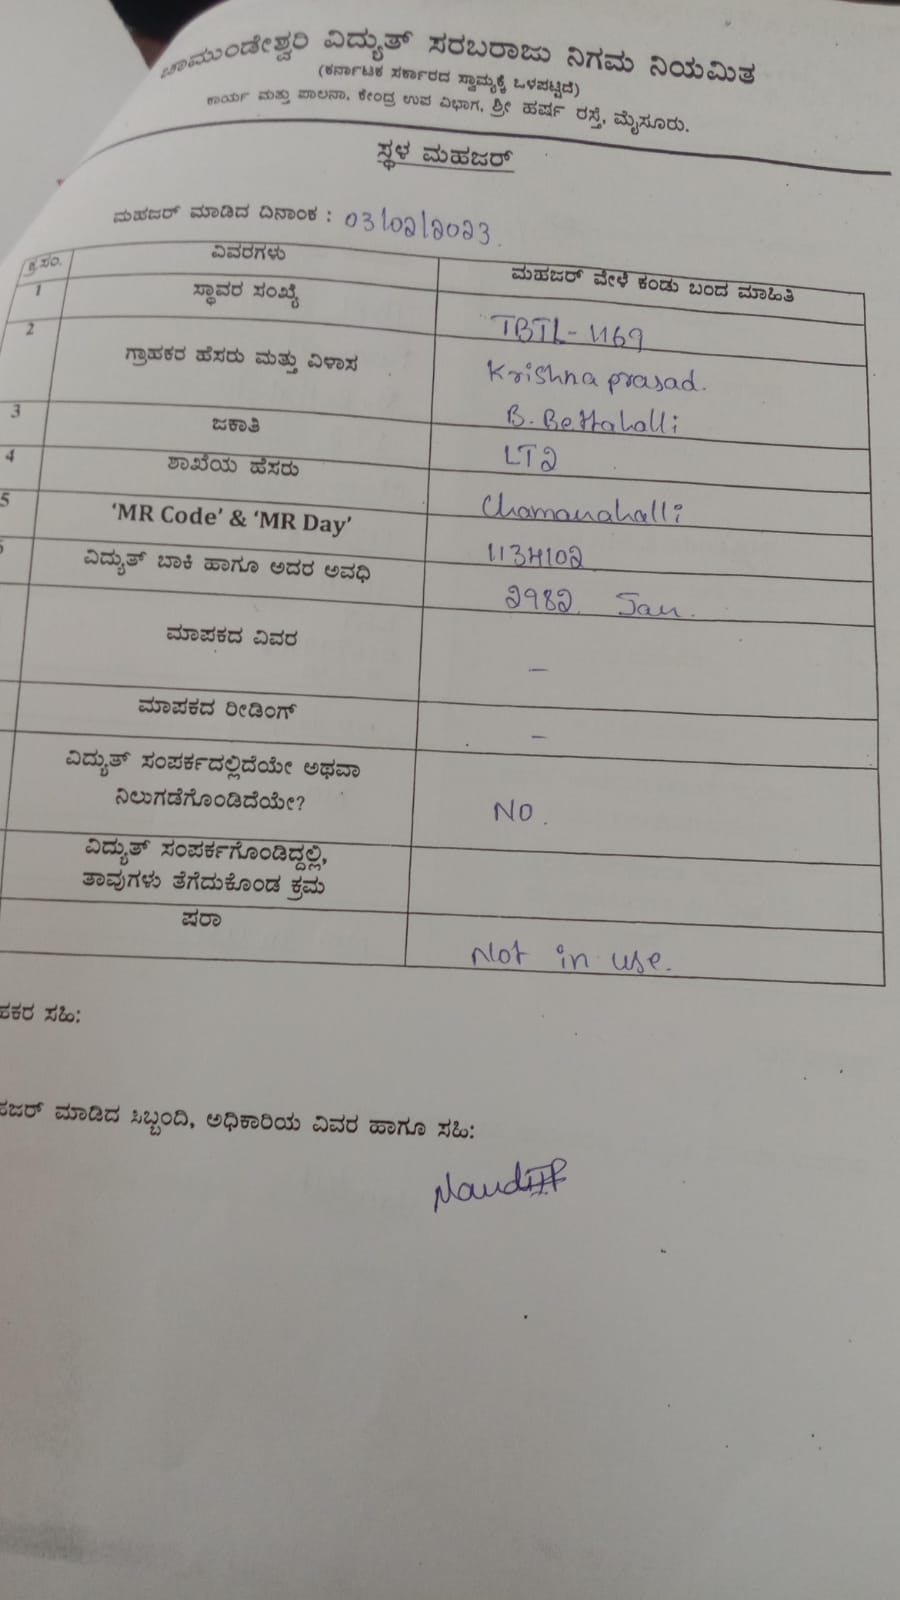 ಚಾಮುಂಡೇಶ್ವರಿ ವಿದ್ಯುತ್ ಸರಬರಾಜು ನಿಗಮ ನಿಯಮಿತ
(ಕರ್ನಾಟಕ ಸರ್ಕಾರದ ಸ್ವಾಮ್ಯಕ್ಕೆ ಒಳಪಟ್ಟಿದೆ)
ಕಾರ್ಯ ಮತ್ತು ಪಾಲನಾ, ಕೇಂದ್ರ ಉಪ ವಿಭಾಗ, ಶ್ರೀ ಹರ್ಷ ರಸ್ತೆ, ಮೈಸೂರು.
ಸ್ಥಳ ಮಹಜರ್
ಮಹಜರ್ ಮಾಡಿದ ದಿನಾಂಕ : 03/02/2023
ಕ್ರ.ಸಂ. ವಿವರಗಳು ಮಹಜರ್ ವೇಳೆ ಕಂಡು ಬಂದ ಮಾಹಿತಿ
1 ಸ್ಥಾವರ ಸಂಖ್ಯೆ TBTL-1169
2 ಗ್ರಾಹಕರ ಹೆಸರು ಮತ್ತು ವಿಳಾಸ Krishna prasad.
B. Bettahalli
3 ಜಕಾತಿ LT2
4 ಶಾಖೆಯ ಹೆಸರು Chamanahalli
5 'MR Code' & 'MR Day' 1134102
ವಿದ್ಯುತ್ ಬಾಕಿ ಹಾಗೂ ಅದರ ಅವಧಿ 2982 Jan.
ಮಾಪಕದ ವಿವರ –
ಮಾಪಕದ ರೀಡಿಂಗ್ –
ವಿದ್ಯುತ್ ಸಂಪರ್ಕದಲ್ಲಿದೆಯೇ ಅಥವಾ
ನಿಲುಗಡೆಗೊಂಡಿದೆಯೇ? NO.
ವಿದ್ಯುತ್ ಸಂಪರ್ಕಗೊಂಡಿದ್ದಲ್ಲಿ,
ತಾವುಗಳು ತೆಗೆದುಕೊಂಡ ಕ್ರಮ
ಷರಾ Not in use.
ಹಕರ ಸಹಿ:
ಹಜರ್ ಮಾಡಿದ ಸಿಬ್ಬಂದಿ, ಅಧಿಕಾರಿಯ ವಿವರ ಹಾಗೂ ಸಹಿ: